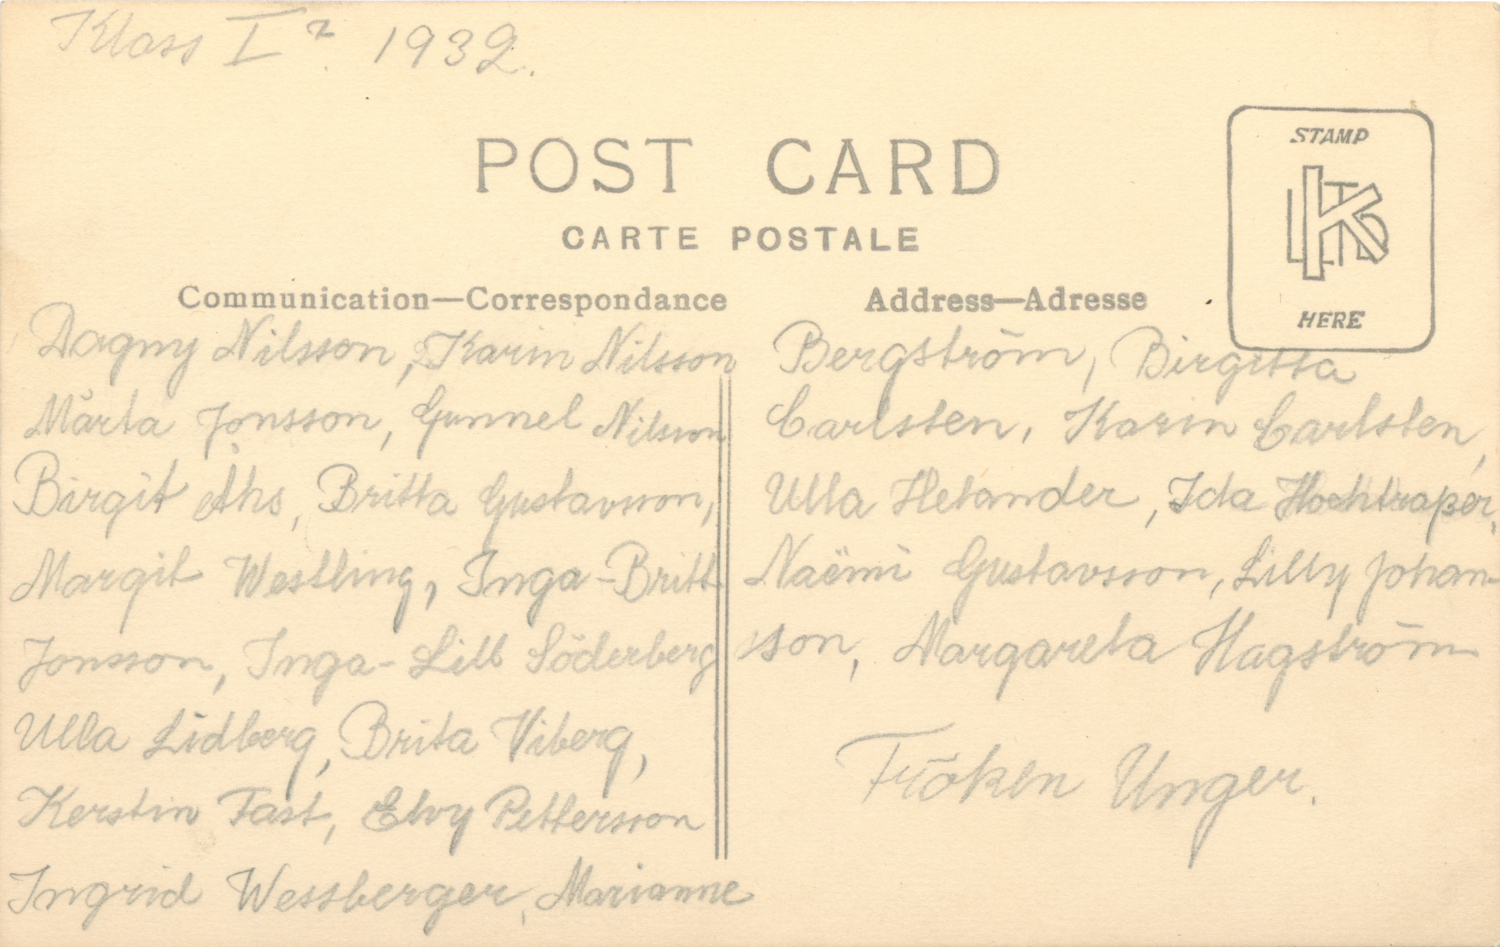 Klass I² 1932.
POST CARD
CARTE POSTALE
STAMP
KLTD
HERE
Communication—Correspondance
Address—Adresse
Dagny Nilsson, Karin Nilsson
Märta Jonsson, Gunnel Nilsson
Birgit Åhs, Britta Gustavsson,
Margit Westling, Inga-Britt
Jonsson, Inga-Lill Söderberg
Ulla Lidberg, Brita Viberg,
Kerstin Fast, Elvy Pettersson
Ingrid Wessberger, Marianne
Bergström, Birgitta
Carlsten, Karin Carlsten,
Ulla Helander, Ida
Naëmi Gustavsson, Lilly Johan-
sson, Margareta Hagström
Fröken Unger.